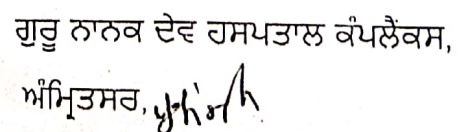 ਗੁਰੂ ਨਾਨਕ ਦੇਵ ਹਸਪਤਾਲ ਕੰਪਲੈਕਸ,
ਅੰਮ੍ਰਿਤਸਰ,